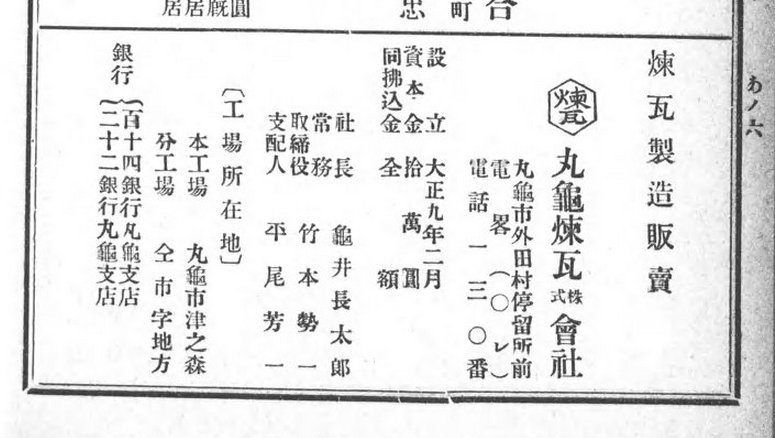 あノ六
合
町
忠
圓厩居居
煉瓦製造販賣
煉瓦
丸龜煉瓦株式會社
丸龜市外田村停留所前
電畧(〇レ)
電話一三〇番
設立 大正九年二月
資本金拾萬圓
同拂込金全額
社長 龜井長太郎
常務取締役 竹本勢一
支配人 平尾芳一
〔工場所在地〕
本工場 丸龜市津之森
分工場 仝市字地方
銀行 百十四銀行丸龜支店
二十二銀行丸龜支店